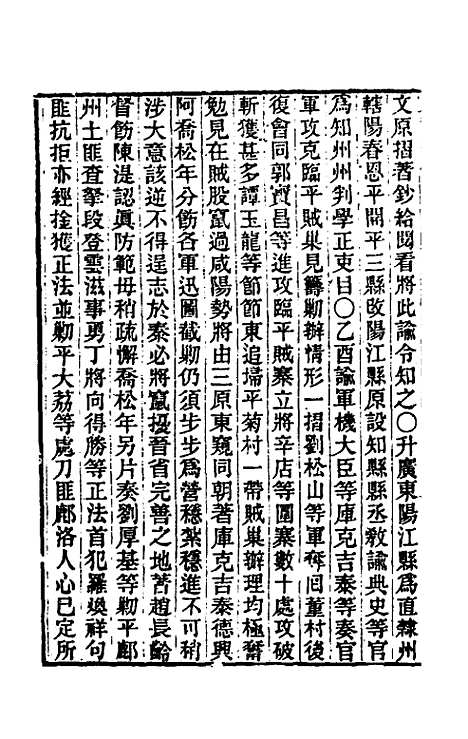 文原摺著鈔給閱看將此諭令知之○升廣東陽江縣爲直隸州
轄陽春恩平開平三縣改陽江縣原設知縣縣丞敎諭典史等官
爲知州州判學正吏目○乙酉諭軍機大臣等庫克吉泰等奏官
軍攻克臨平賊巢見籌勦辦情形一摺劉松山等軍奪囘董村後
復會同郭寶昌等進攻臨平賊寨立將辛店等圍寨數十處攻破
斬獲甚多譚玉龍等節節東追埽平菊村一帶賊巢辦理均極奮
勉見在賊股竄過咸陽勢將由三原東窺同朝著庫克吉泰德興
阿喬松年分飭各軍迅圖截勦仍須步步爲營穩紮穩進不可稍
涉大意該逆不得逞志於秦必將竄擾晉省完善之地著趙長齡
督飭陳湜認眞防範毋稍疏懈喬松年另片奏劉厚基等勦平鄜
州土匪查拏段登雲滋事勇丁將向得勝等正法首犯羅煥祥句
匪抗拒亦經捦獲正法並勦平大荔等處刀匪鄜洛人心已定所